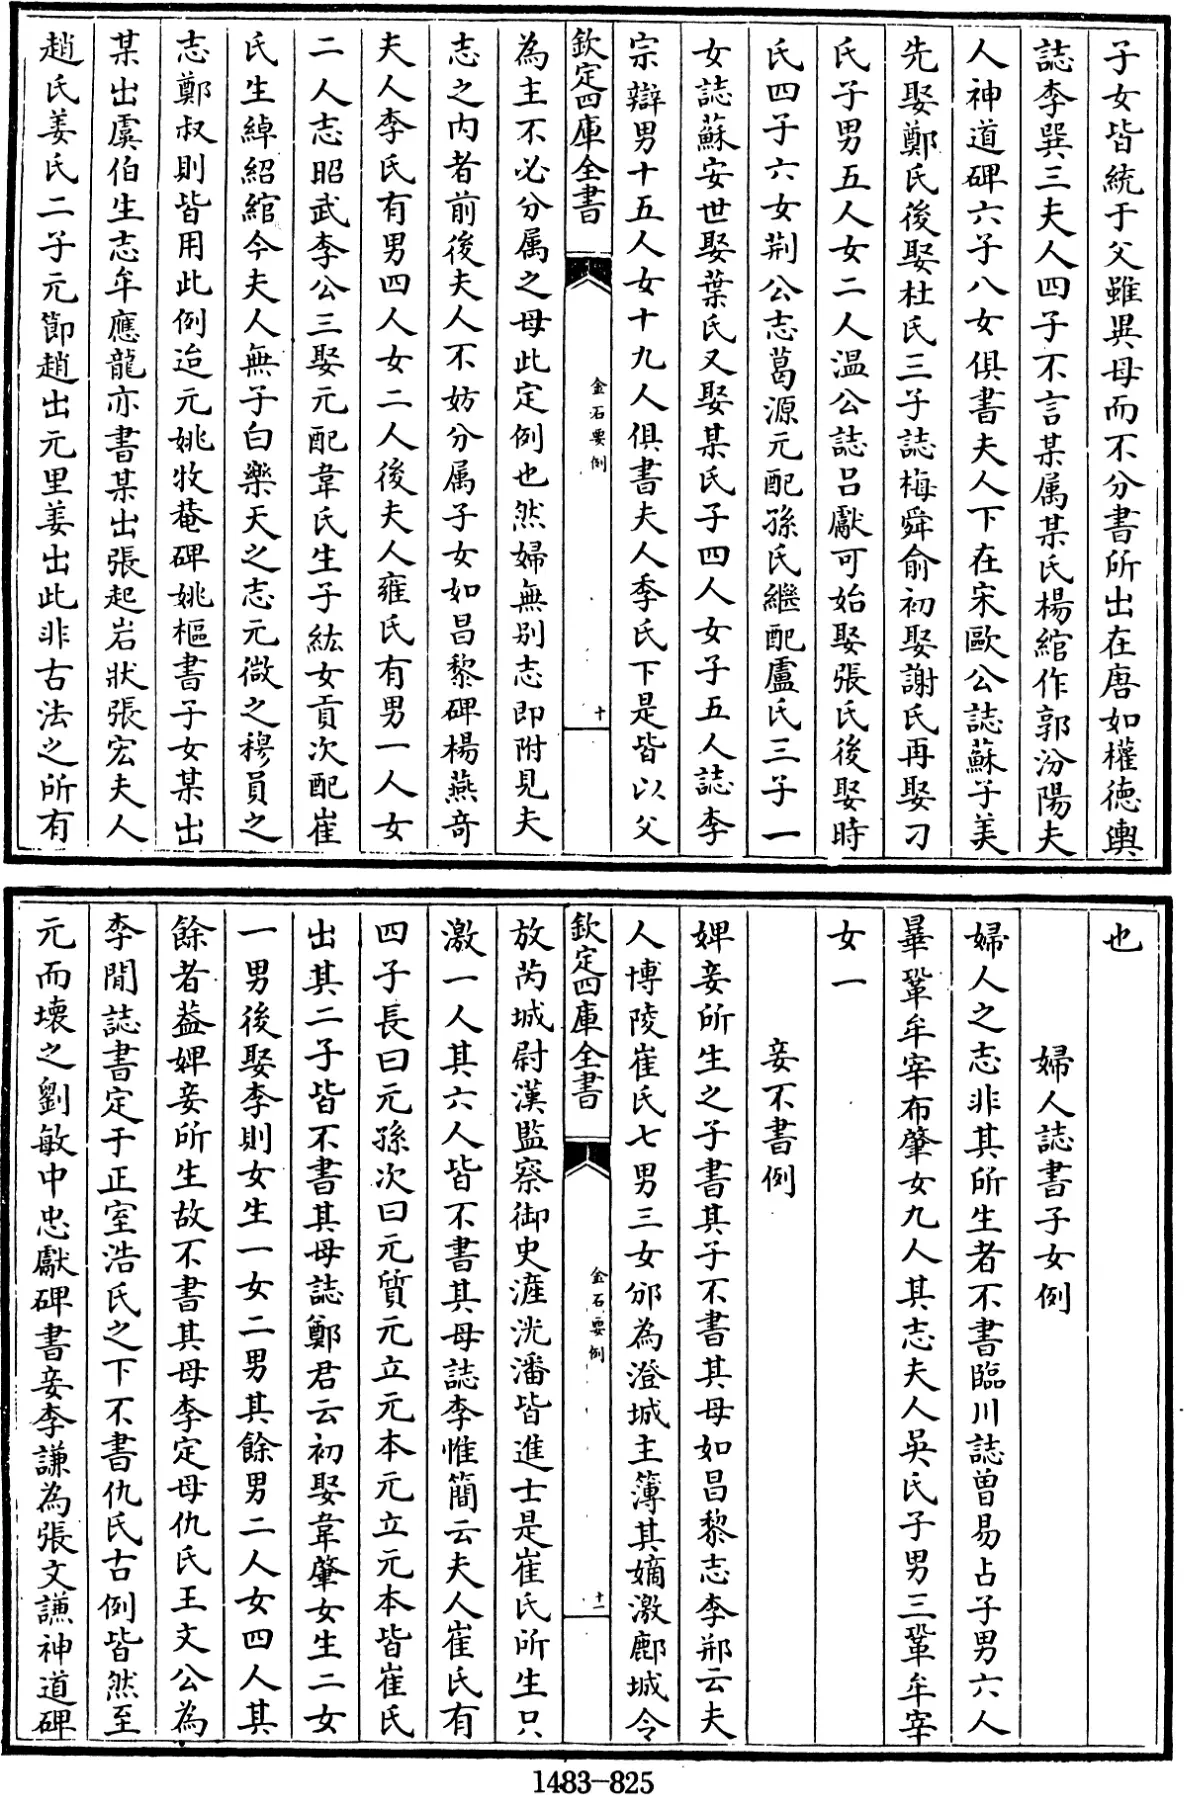 子女皆統于父雖異母而不分書所出在唐如權德輿
誌李巽三夫人四子不言某属某氏楊綰作郭汾陽夫
人神道碑六子八女俱書夫人下在宋歐公誌蘇子美
先娶鄭氏後娶杜氏三子誌梅舜俞初娶謝氏再娶刁
氏子男五人女二人温公誌吕獻可始娶張氏後娶時
氏四子六女荆公志葛源元配孫氏繼配盧氏三子一
女誌蘇安世娶葉氏又娶某氏子四人女子五人誌李
宗辯男十五人女十九人俱書夫人季氏下是皆以父
欽定四庫全書
金石要例
十
為主不必分属之母此定例也然婦無别志即附見夫
志之内者前後夫人不妨分属子女如昌黎碑楊燕奇
夫人李氏有男四人女二人後夫人雍氏有男一人女
二人志昭武李公三娶元配韋氏生子紘女貢次配崔
氏生綽紹綰今夫人無子白樂天之志元微之穆員之
志鄭叔則皆用此例迨元姚牧菴碑姚樞書子女某出
某出虞伯生志牟應龍亦書某出張起岩狀張宏夫人
趙氏姜氏二子元節趙出元里姜出此非古法之所有
也
婦人誌書子女例
婦人之志非其所生者不書臨川誌曾易占子男六人
曅鞏牟宰布肇女九人其志夫人吳氏子男三鞏牟宰
女一
妾不書例
婢妾所生之子書其子不書其母如昌黎志李邢云夫
人博陵崔氏七男三女邠為澄城主簿其嫡激鄜城令
欽定四庫全書
金石要例
十一
放芮城尉漢監察御史滻洸潘皆進士是崔氏所生只
激一人其六人皆不書其母誌李惟簡云夫人崔氏有
四子長曰元孫次曰元質元立元本元立元本皆崔氏
出其二子皆不書其母誌鄭君云初娶韋肇女生二女
一男後娶李則女生一女二男其餘男二人女四人其
餘者葢婢妾所生故不書其母李定母仇氏王文公為
李閒誌書定于正室浩氏之下不書仇氏古例皆然至
元而壊之劉敏中忠獻碑書妾李謙為張文謙神道碑
1483-825